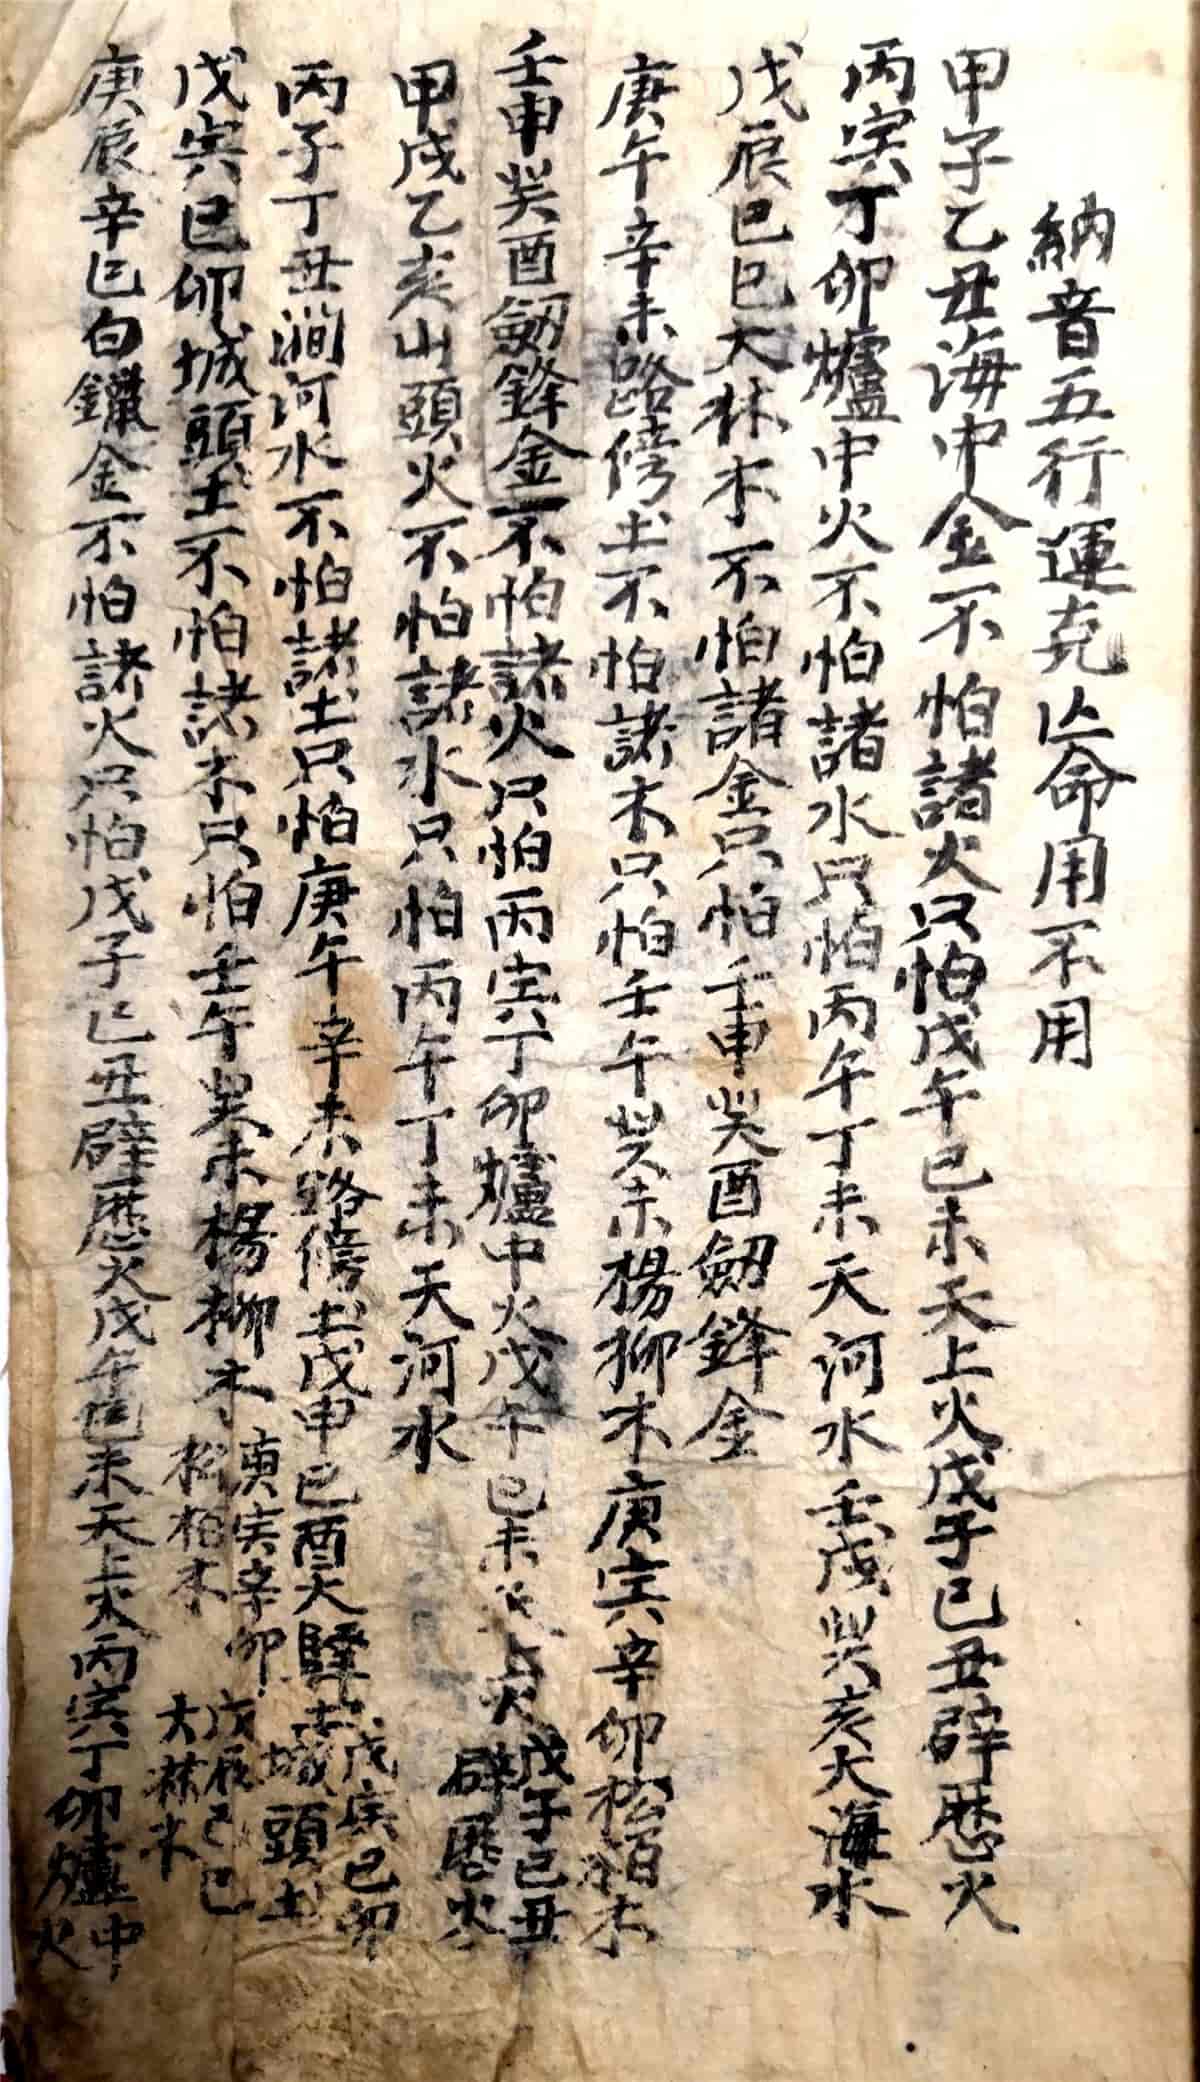 納音五行運克亡命用不用
甲子乙丑海中金不怕諸火只怕戊午己未天上火戊子己丑辟歷火
丙寅丁卯爐中火不怕諸水只怕丙午丁未天河水壬戌癸亥大海水
戊辰己巳大林木不怕諸金只怕壬申癸酉劔鋒金
庚午辛未路傍土不怕諸木只怕壬午癸未楊柳木庚寅辛卯松柏木
壬申癸酉劔鋒金不怕諸火只怕丙寅丁卯爐中火戊午己未天上火戊子己丑
辟歷火
甲戌乙亥山頭火不怕諸水只怕丙午丁未天河水
丙子丁丑澗河水不怕諸土只怕庚午辛未路傍土戊申己酉大驛土戊寅己卯
城頭土
戊寅己卯城頭土不怕諸木只怕壬午癸未楊柳木庚寅辛卯
松柏木
戊辰己巳
大林木
庚辰辛巳白鑞金不怕諸火只怕戊子己丑辟歷火戊午己未天上火丙寅丁卯爐中
火